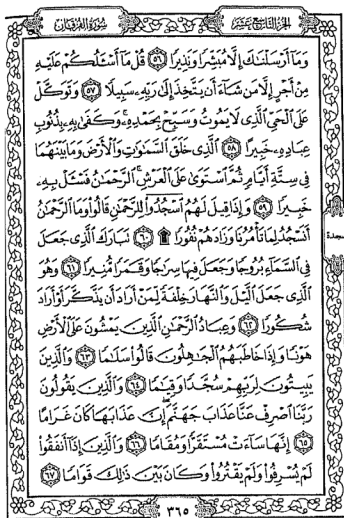 الجزء التاسع عشر
سورة الفرقان
وَمَآ أَرْسَلْنَٰكَ إِلَّا مُبَشِّرًا وَنَذِيرًا ٥٦ قُلْ مَآ أَسْـَٔلُكُمْ عَلَيْهِ
مِنْ أَجْرٍ إِلَّا مَن شَآءَ أَن يَتَّخِذَ إِلَىٰ رَبِّهِۦ سَبِيلًا ٥٧ وَتَوَكَّلْ
عَلَى ٱلْحَىِّ ٱلَّذِى لَا يَمُوتُ وَسَبِّحْ بِحَمْدِهِۦ ۚ وَكَفَىٰ بِهِۦ بِذُنُوبِ
عِبَادِهِۦ خَبِيرًا ٥٨ ٱلَّذِى خَلَقَ ٱلسَّمَٰوَٰتِ وَٱلْأَرْضَ وَمَا بَيْنَهُمَا
فِى سِتَّةِ أَيَّامٍ ثُمَّ ٱسْتَوَىٰ عَلَى ٱلْعَرْشِ ۚ ٱلرَّحْمَٰنُ فَسْـَٔلْ بِهِۦ
خَبِيرًا ٥٩ وَإِذَا قِيلَ لَهُمُ ٱسْجُدُوا۟ لِلرَّحْمَٰنِ قَالُوا۟ وَمَا ٱلرَّحْمَٰنُ
أَنَسْجُدُ لِمَا تَأْمُرُنَا وَزَادَهُمْ نُفُورًا ۩ ٦٠ تَبَارَكَ ٱلَّذِى جَعَلَ
فِى ٱلسَّمَآءِ بُرُوجًا وَجَعَلَ فِيهَا سِرَٰجًا وَقَمَرًا مُّنِيرًا ٦١ وَهُوَ
ٱلَّذِى جَعَلَ ٱلَّيْلَ وَٱلنَّهَارَ خِلْفَةً لِّمَنْ أَرَادَ أَن يَذَّكَّرَ أَوْ أَرَادَ
شُكُورًا ٦٢ وَعِبَادُ ٱلرَّحْمَٰنِ ٱلَّذِينَ يَمْشُونَ عَلَى ٱلْأَرْضِ
هَوْنًا وَإِذَا خَاطَبَهُمُ ٱلْجَٰهِلُونَ قَالُوا۟ سَلَٰمًا ٦٣ وَٱلَّذِينَ
يَبِيتُونَ لِرَبِّهِمْ سُجَّدًا وَقِيَٰمًا ٦٤ وَٱلَّذِينَ يَقُولُونَ
رَبَّنَا ٱصْرِفْ عَنَّا عَذَابَ جَهَنَّمَ ۖ إِنَّ عَذَابَهَا كَانَ غَرَامًا
٦٥ إِنَّهَا سَآءَتْ مُسْتَقَرًّا وَمُقَامًا ٦٦ وَٱلَّذِينَ إِذَآ أَنفَقُوا۟
لَمْ يُسْرِفُوا۟ وَلَمْ يَقْتُرُوا۟ وَكَانَ بَيْنَ ذَٰلِكَ قَوَامًا ٦٧
سجدة
٣٦٥